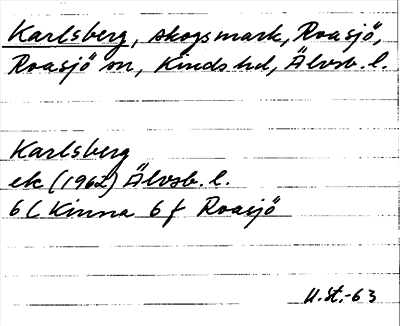 Karlsberg, skogsmark, Roasjö,
Roasjö sn, Kinds hd, Älvsb. l.
Karlsberg
ek (1962) Älvsb. l.
6C Kinna 6 f Roasjö
U.St.-63